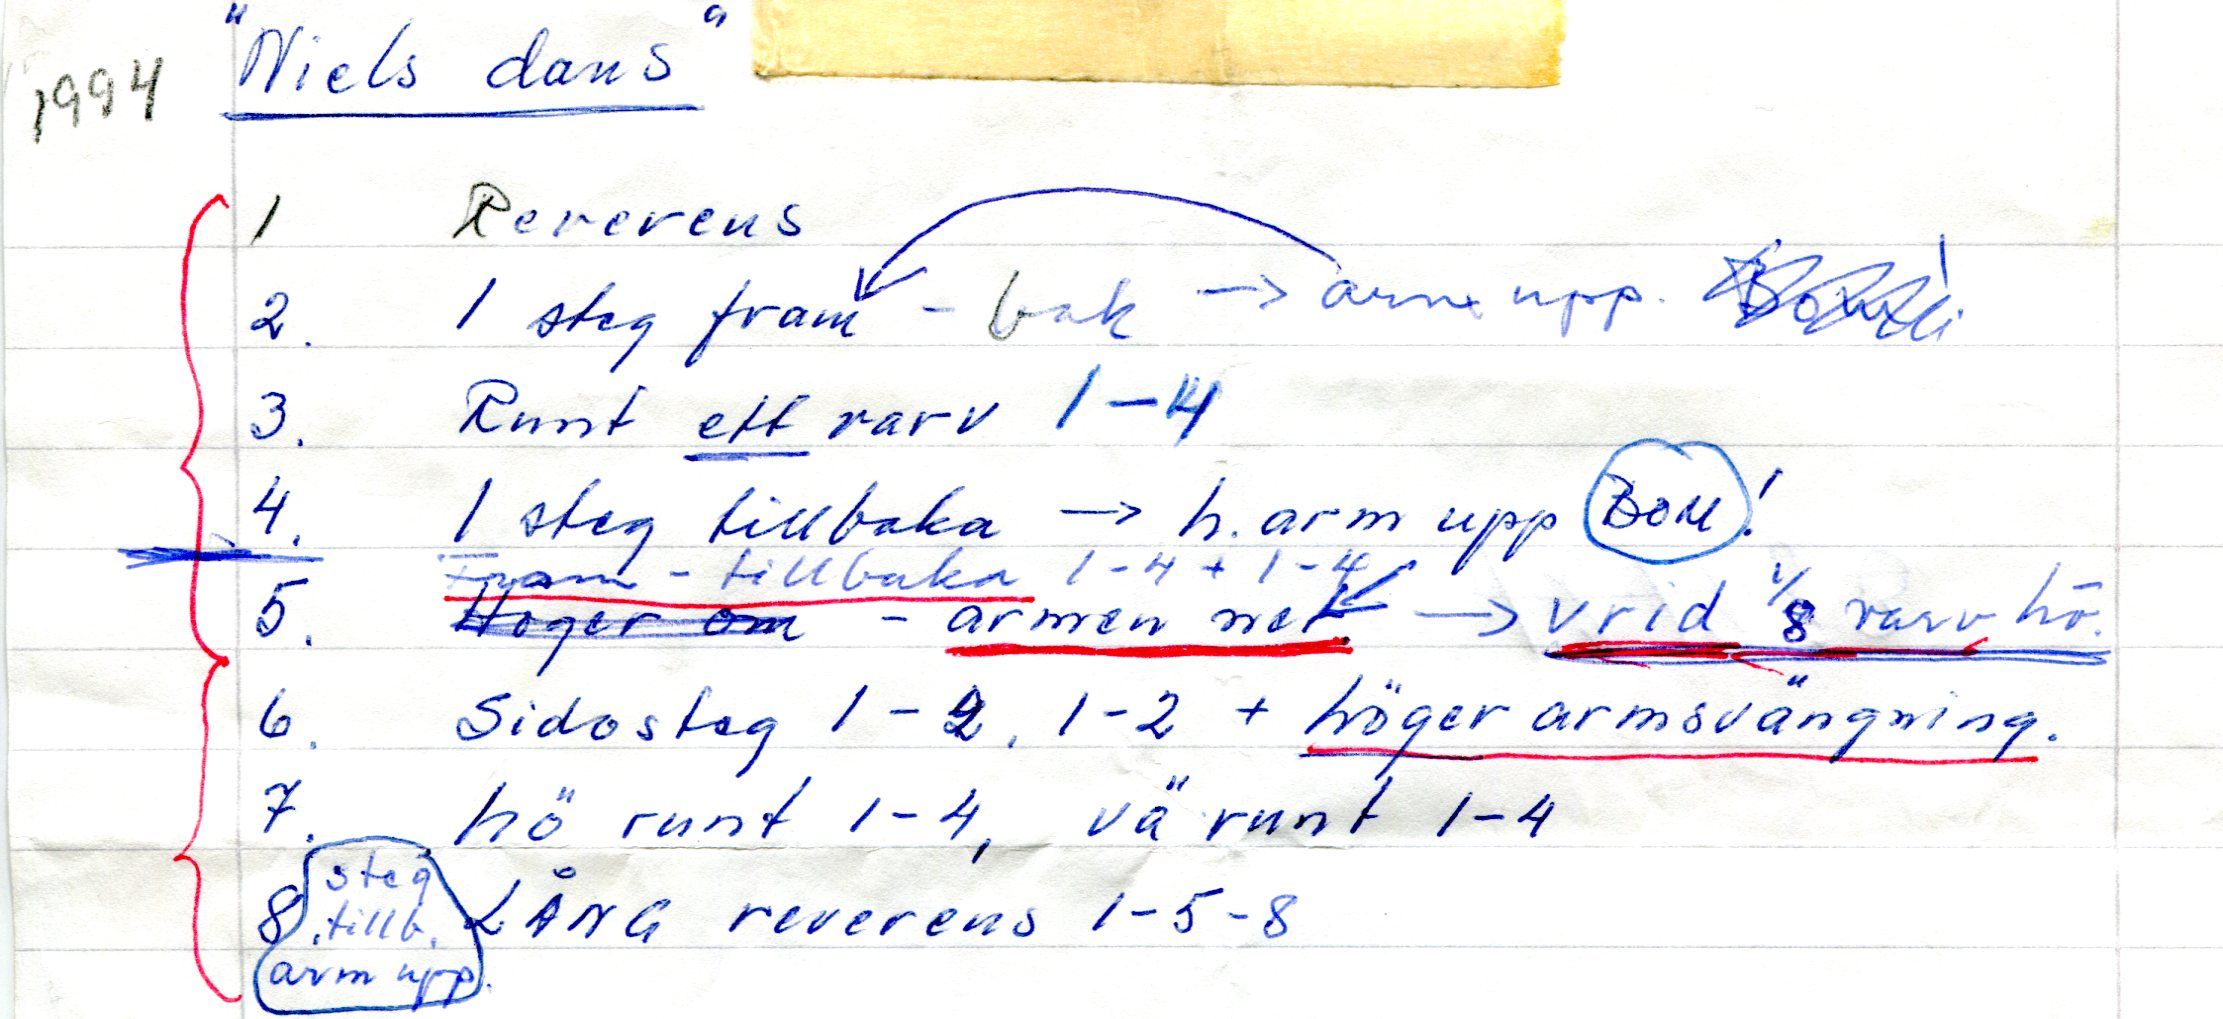 "Niels dans"
1994
1 Rererens
2. 1 steg fram - bak → arm upp.
3. Runt ett rarv 1-4
4. 1 steg tillbaka → h. arm upp BOM!
Fram - tillbaka 1-4 + 1-4
5. Höger om - armen ner → vrid 1/8 varv hö.
6. Sidosteg 1-2, 1-2 + höger armsvängning.
7. hö runt 1-4, vä runt 1-4
steg
8. tillb. LÅNG reverens 1-5-8
arm upp.